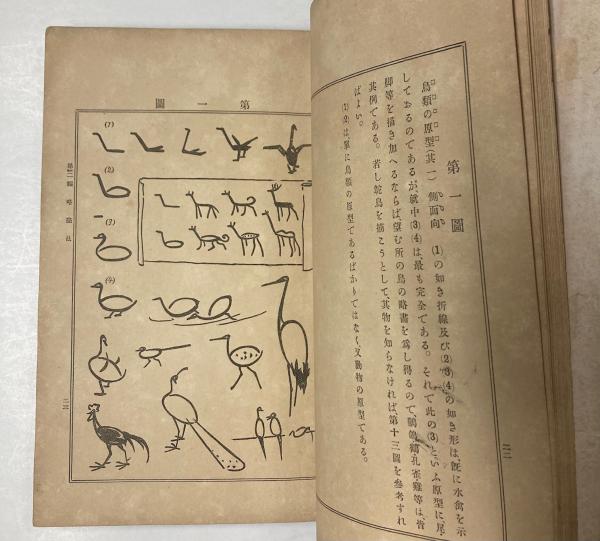 第一圖
鳥類の原型(其一) 側面向 (1)の如き折線及び(2)(3)(4)の如き形は、既に水禽を示
しておるのであるが、就中(3)(4)は、最も完全である。それで此の(3)といふ原型に尾・
脚等を描き加へるならば望む所の鳥の略畫を爲し得るので、孔雀・雞等は、皆
其例である。若し鴕鳥を描こうとして、其物を知らなければ、第十三圖を參考すれ
ばよい。
(1)(2)は、單に鳥類の原型であるばかりではなく、又動物の原型である。
二二
第一圖
(1)
(2)
(3)
(4)
編 略畫法
二三